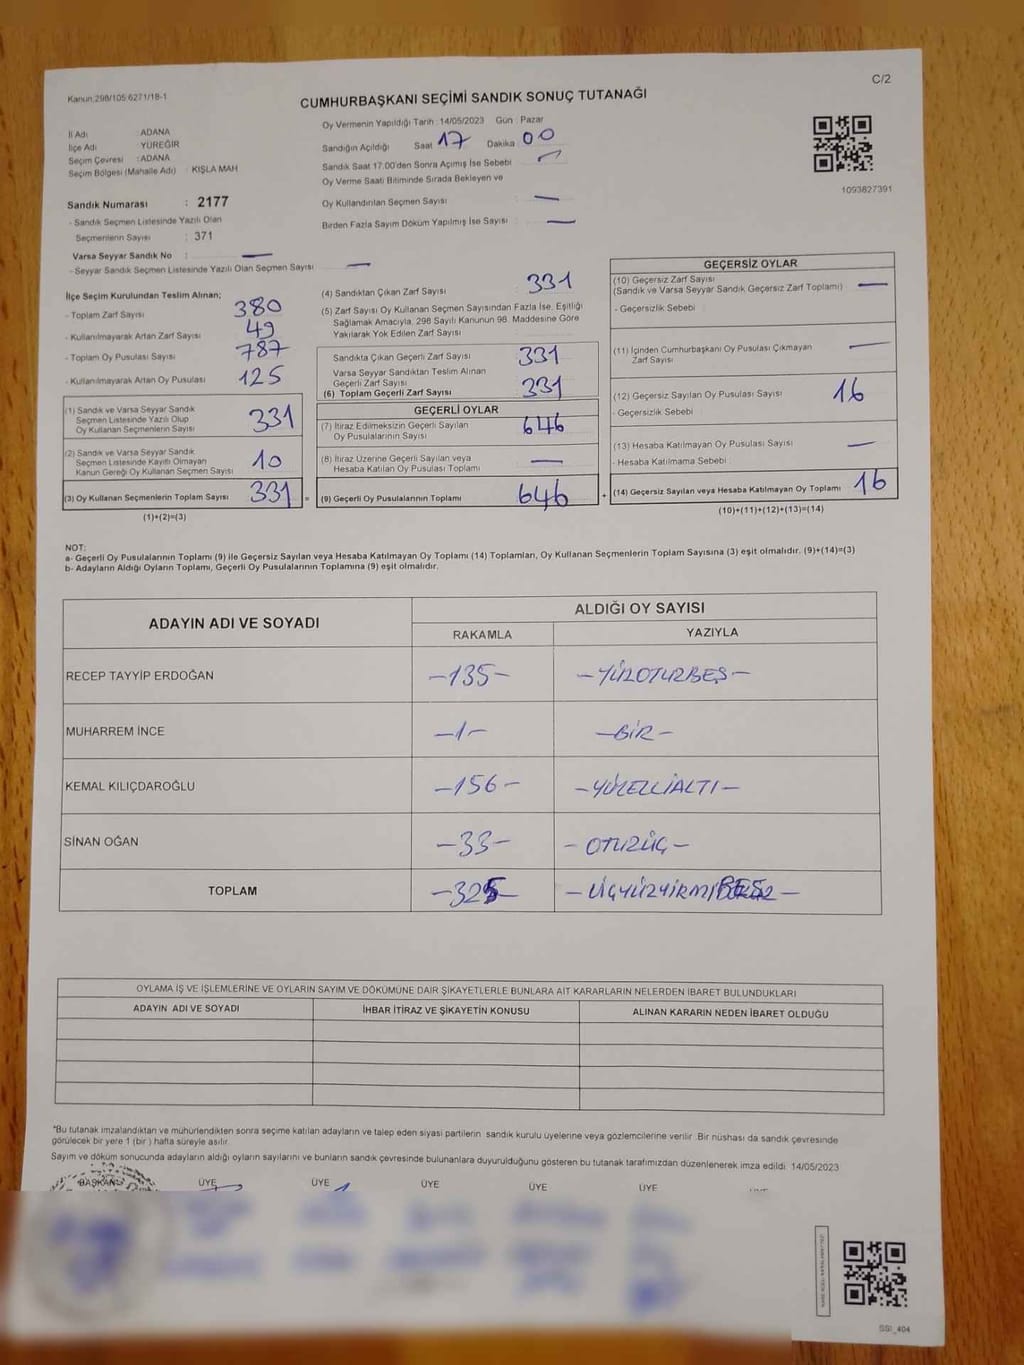 C/2
Kanun:298/105 6271/18-1
CUMHURBAŞKANI SEÇİMİ SANDIK SONUÇ TUTANAĞI
İl Adı : ADANA
İlçe Adı : YÜREĞİR
Seçim Çevresi : ADANA
Seçim Bölgesi (Mahalle Adı) : KIŞLA MAH
Sandık Numarası : 2177
- Sandık Seçmen Listesinde Yazılı Olan
Seçmenlerin Sayısı : 371
Varsa Seyyar Sandık No : —
- Seyyar Sandık Seçmen Listesinde Yazılı Olan Seçmen Sayısı —
Oy Vermenin Yapıldığı Tarih : 14/05/2023 Gün : Pazar
Sandığın Açıldığı Saat 17 Dakika 00
Sandık Saat 17.00'den Sonra Açımış İse Sebebi —
Oy Verme Saati Bitiminde Sırada Bekleyen ve
Oy Kullandırılan Seçmen Sayısı —
Birden Fazla Sayım Döküm Yapılmış İse Sayısı —
1093827391
İlçe Seçim Kurulundan Teslim Alınan;
- Toplam Zarf Sayısı 380
- Kullanılmayarak Artan Zarf Sayısı 49
- Toplam Oy Pusulası Sayısı 787
- Kullanılmayarak Artan Oy Pusulası 125
(1) Sandık ve Varsa Seyyar Sandık
Seçmen Listesinde Yazılı Olup
Oy Kullanan Seçmenlerin Sayısı 331
(2) Sandık ve Varsa Seyyar Sandık
Seçmen Listesinde Kayıtlı Olmayan
Kanun Gereği Oy Kullanan Seçmen Sayısı 10
(3) Oy Kullanan Seçmenlerin Toplam Sayısı 331 =
(1)+(2)=(3)
(4) Sandıktan Çıkan Zarf Sayısı 331
(5) Zarf Sayısı Oy Kullanan Seçmen Sayısından Fazla İse, Eşitliği
Sağlamak Amacıyla, 298 Sayılı Kanunun 98. Maddesine Göre
Yakılarak Yok Edilen Zarf Sayısı
Sandıkta Çıkan Geçerli Zarf Sayısı 331
Varsa Seyyar Sandıktan Teslim Alınan
Geçerli Zarf Sayısı
(6) Toplam Geçerli Zarf Sayısı 331
GEÇERLİ OYLAR
(7) İtiraz Edilmeksizin Geçerli Sayılan
Oy Pusulalarının Sayısı 646
(8) İtiraz Üzerine Geçerli Sayılan veya
Hesaba Katılan Oy Pusulası Toplamı —
(9) Geçerli Oy Pusulalarının Toplamı 646 +
GEÇERSİZ OYLAR
(10) Geçersiz Zarf Sayısı
(Sandık ve Varsa Seyyar Sandık Geçersiz Zarf Toplamı) —
- Geçersizlik Sebebi
(11) İçinden Cumhurbaşkanı Oy Pusulası Çıkmayan
Zarf Sayısı —
(12) Geçersiz Sayılan Oy Pusulası Sayısı 16
- Geçersizlik Sebebi
(13) Hesaba Katılmayan Oy Pusulası Sayısı —
- Hesaba Katılmama Sebebi
(14) Geçersiz Sayılan veya Hesaba Katılmayan Oy Toplamı 16
(10)+(11)+(12)+(13)=(14)
NOT:
a- Geçerli Oy Pusulalarının Toplamı (9) ile Geçersiz Sayılan veya Hesaba Katılmayan Oy Toplamı (14) Toplamları, Oy Kullanan Seçmenlerin Toplam Sayısına (3) eşit olmalıdır. (9)+(14)=(3)
b- Adayların Aldığı Oyların Toplamı, Geçerli Oy Pusulalarının Toplamına (9) eşit olmalıdır.
ADAYIN ADI VE SOYADI ALDIĞI OY SAYISI
RAKAMLA YAZIYLA
RECEP TAYYİP ERDOĞAN -135- -YÜZOTUZBEŞ-
MUHARREM İNCE -1- -BİR-
KEMAL KILIÇDAROĞLU -156- -YÜZELLİALTI-
SİNAN OĞAN -33- -OTUZÜÇ-
TOPLAM -325- -ÜÇYÜZYİRMİBEŞ-
OYLAMA İŞ VE İŞLEMLERİNE VE OYLARIN SAYIM VE DÖKÜMÜNE DAİR ŞİKAYETLERLE BUNLARA AİT KARARLARIN NELERDEN İBARET BULUNDUKLARI
ADAYIN ADI VE SOYADI İHBAR İTİRAZ VE ŞİKAYETİN KONUSU ALINAN KARARIN NEDEN İBARET OLDUĞU
*Bu tutanak imzalandıktan ve mühürlendikten sonra seçime katılan adayların ve talep eden siyasi partilerin sandık kurulu üyelerine veya gözlemcilerine verilir. Bir nüshası da sandık çevresinde
görülecek bir yere 1 (bir) hafta süreyle asılır.
Sayım ve döküm sonucunda adayların aldığı oyların sayılarını ve bunların sandık çevresinde bulunanlara duyurulduğunu gösteren bu tutanak tarafımızdan düzenlenerek imza edildi. 14/05/2023
BAŞKAN ÜYE ÜYE ÜYE ÜYE ÜYE
SSI_404